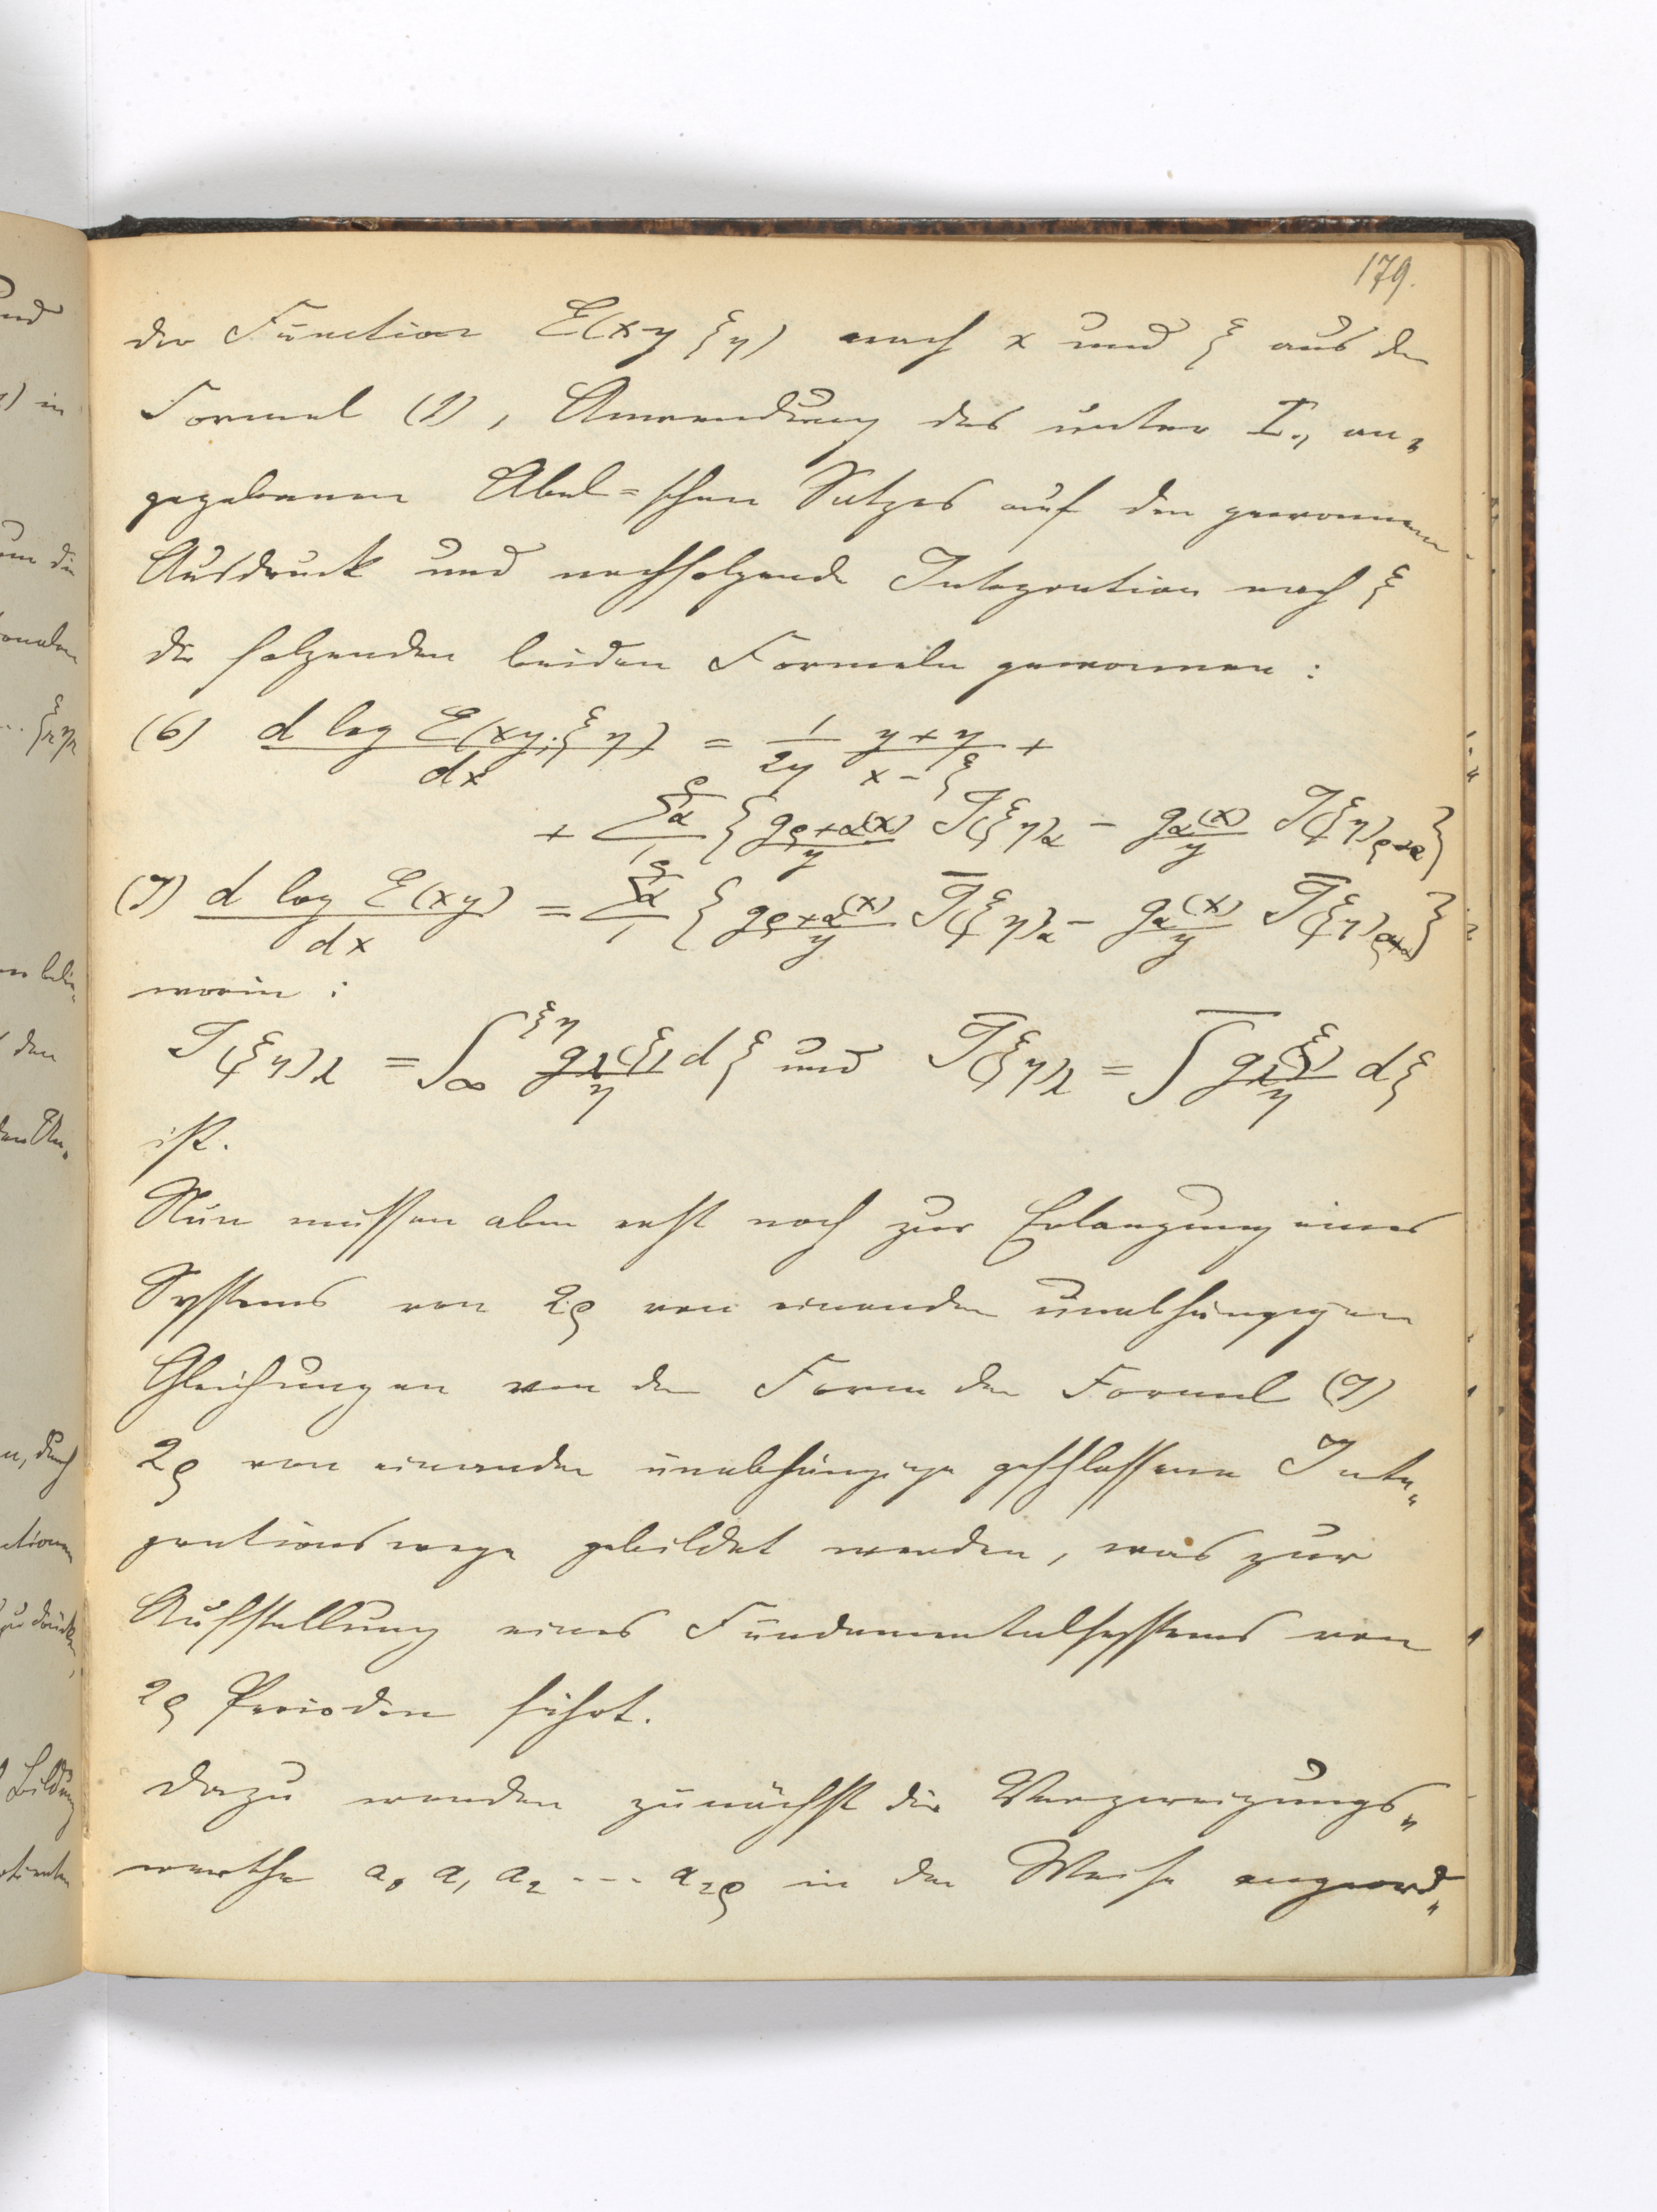 179.
der Function E(xy ξη) nach x und ξ aus der
Formel (1), Anwendung des unter I., an„
gegebenen Abel=schen Satzes auf den gewonnenen
Ausdruck und nachfolgende Integration nach ξ
die folgenden beiden Formeln gewonnen:
(6) d log E(xy; ξη) / dx = 1/2y (y + η)/(x − ξ) +
+ Σα 1 ρ { gρ+α(x)/y J(ξη)α − gα(x)/y J(ξη)ρ+α }
(7) d log E(xy) / dx = Σα 1 ρ { gρ+α(x)/y J̅(ξη)α − gα(x)/y J̅(ξη)ρ+α }
worin:
J(ξη)λ = ∫∞ ξη gλ(ξ)/η dξ und J̅(ξη)λ = ∫̅ gλ(ξ)/η dξ
ist.
Nun müssen aber erst noch zur Erlangung eines
Systems von 2ρ von einander unabhängigen
Gleichungen von der Form der Formel (7)
2ρ von einander unabhängige geschlossene Inte„
grationswege gebildet werden, was zur
Aufstellung eines Fundamentalsystems von
2ρ Perioden führt.
Dazu werden zunächst die Verzweigungs„
werthe a₀ a₁ a₂ --- a₂ρ in der Weise angeord„